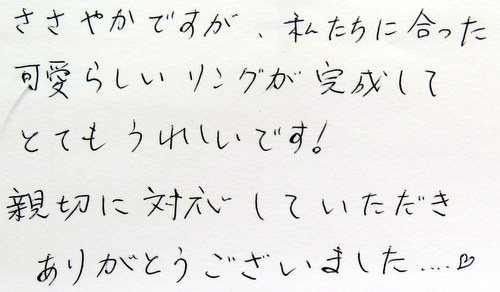 ささやかですが、私たちに合った
可愛らしいリングが完成して
とてもうれしいです!
親切に対応していただき
ありがとうございました....♡